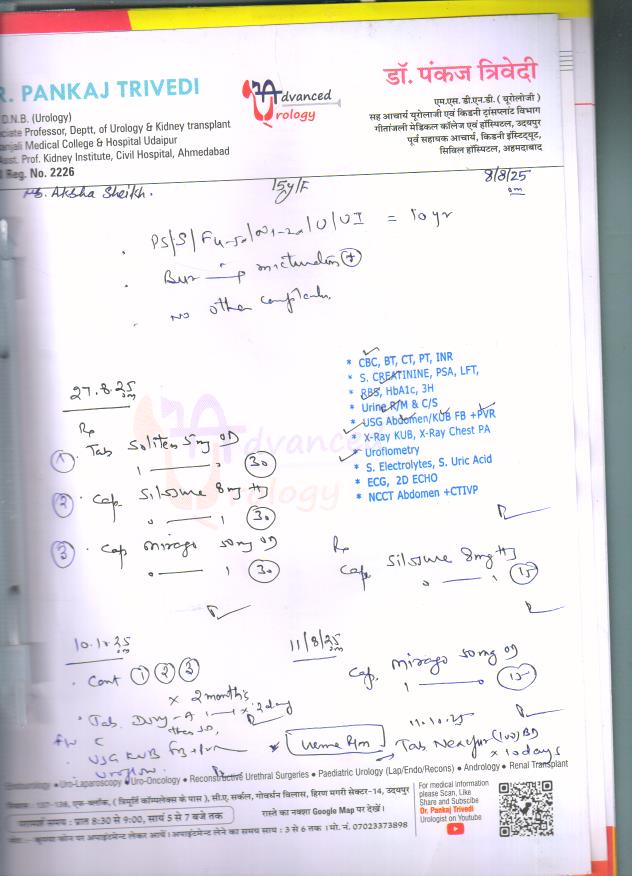 R. PANKAJ TRIVEDI
D.N.B. (Urology)
ciate Professor, Deptt. of Urology & Kidney transplant
anjali Medical College & Hospital Udaipur
Asst. Prof. Kidney Institute, Civil Hospital, Ahmedabad
Reg. No. 2226
Advanced
Urology
डॉ. पंकज त्रिवेदी
एम.एस. डी.एन.बी. ( यूरोलोजी )
सह आचार्य यूरोलाजी एवं किडनी ट्रांसप्लांट विभाग
गीतांजली मेडिकल कॉलेज एवं हॉस्पिटल, उदयपुर
पूर्व सहायक आचार्य, किडनी इंस्टिट्यूट,
सिविल हॉस्पिटल, अहमदाबाद
Aksha Sheikh.
15y/F
8/8/25
= 10 yr
micturition
No other complaints
* CBC, BT, CT, PT, INR
* S. CREATININE, PSA, LFT,
* RBS, HbA1c, 3H
* Urine R/M & C/S
* USG Abdomen/KUB FB +PVR
* X-Ray KUB, X-Ray Chest PA
* Uroflometry
* S. Electrolytes, S. Uric Acid
* ECG, 2D ECHO
* NCCT Abdomen +CTIVP
27.8.25
Rp
1 Tab Soliten 5mg OD
30
2 Cap Silssure 8mg
30
3 Cap Mirago 50mg OD
30
Rp
Cap Silssure 8mg
15
11/8/25
Cap. Mirago 50mg OD
15
10.10.25
Cont 1 2 3
x 2 months
USG KUB FB + PVR
Uroflow
11.10.25
Urine R/m
Tab x 10 days
Uro-Laparoscopy • Uro-Oncology • Reconstructive Urethral Surgeries • Paediatric Urology (Lap/Endo/Recons) • Andrology • Renal Transplant
137-138, एफ-ब्लॉक, ( त्रिमूर्ति कॉम्पलेक्स के पास ), सी.ए. सर्कल, गोवर्धन विलास, हिरण मगरी सेक्टर-14, उदयपुर
परामर्श समय : प्रात 8:30 से 9:00, सायं 5 से 7 बजे तक
रास्ते का नक्शा Google Map पर देखें।
कृपया फोन पर अपाइंटमेन्ट लेकर आयें। अपाइंटमेन्ट लेने का समय सायं : 3 से 6 तक । मो. नं. 07023373898
For medical information
please Scan, Like
Share and Subscibe
Dr. Pankaj Trivedi
Urologist on Youtube